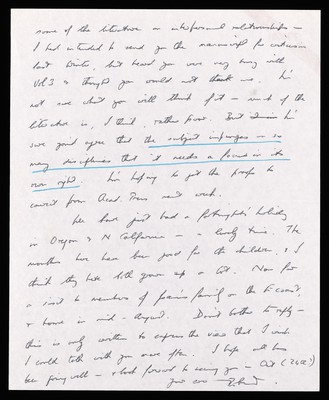 some of the literature on interpersonal relationships –
I had intended to send you the manuscript for criticism
last winter, but heard you were very busy with
Vol 3 & thought you would not thank me. I'm
not sure what you will think of it – much of the
literature is, I think, rather poor. But I'm
sure you'd agree that the subject impinges on so
many disciplines that it needs a focus in its
own right. I'm hoping to get the proofs to
correct from Acad. Press next week.
We have just had a fortnight's holiday
in Oregon & N California – a lovely time. The
months here have been good for the children, & I
think they have both grown up a lot. Now for
a visit to members of family on the E coast,
& home in mid-August. Don't bother to reply –
this is only written to express the view that I wish
I could talk with you more often. I hope all has
been going well – & look forward to seeing you – Oct
yours ever